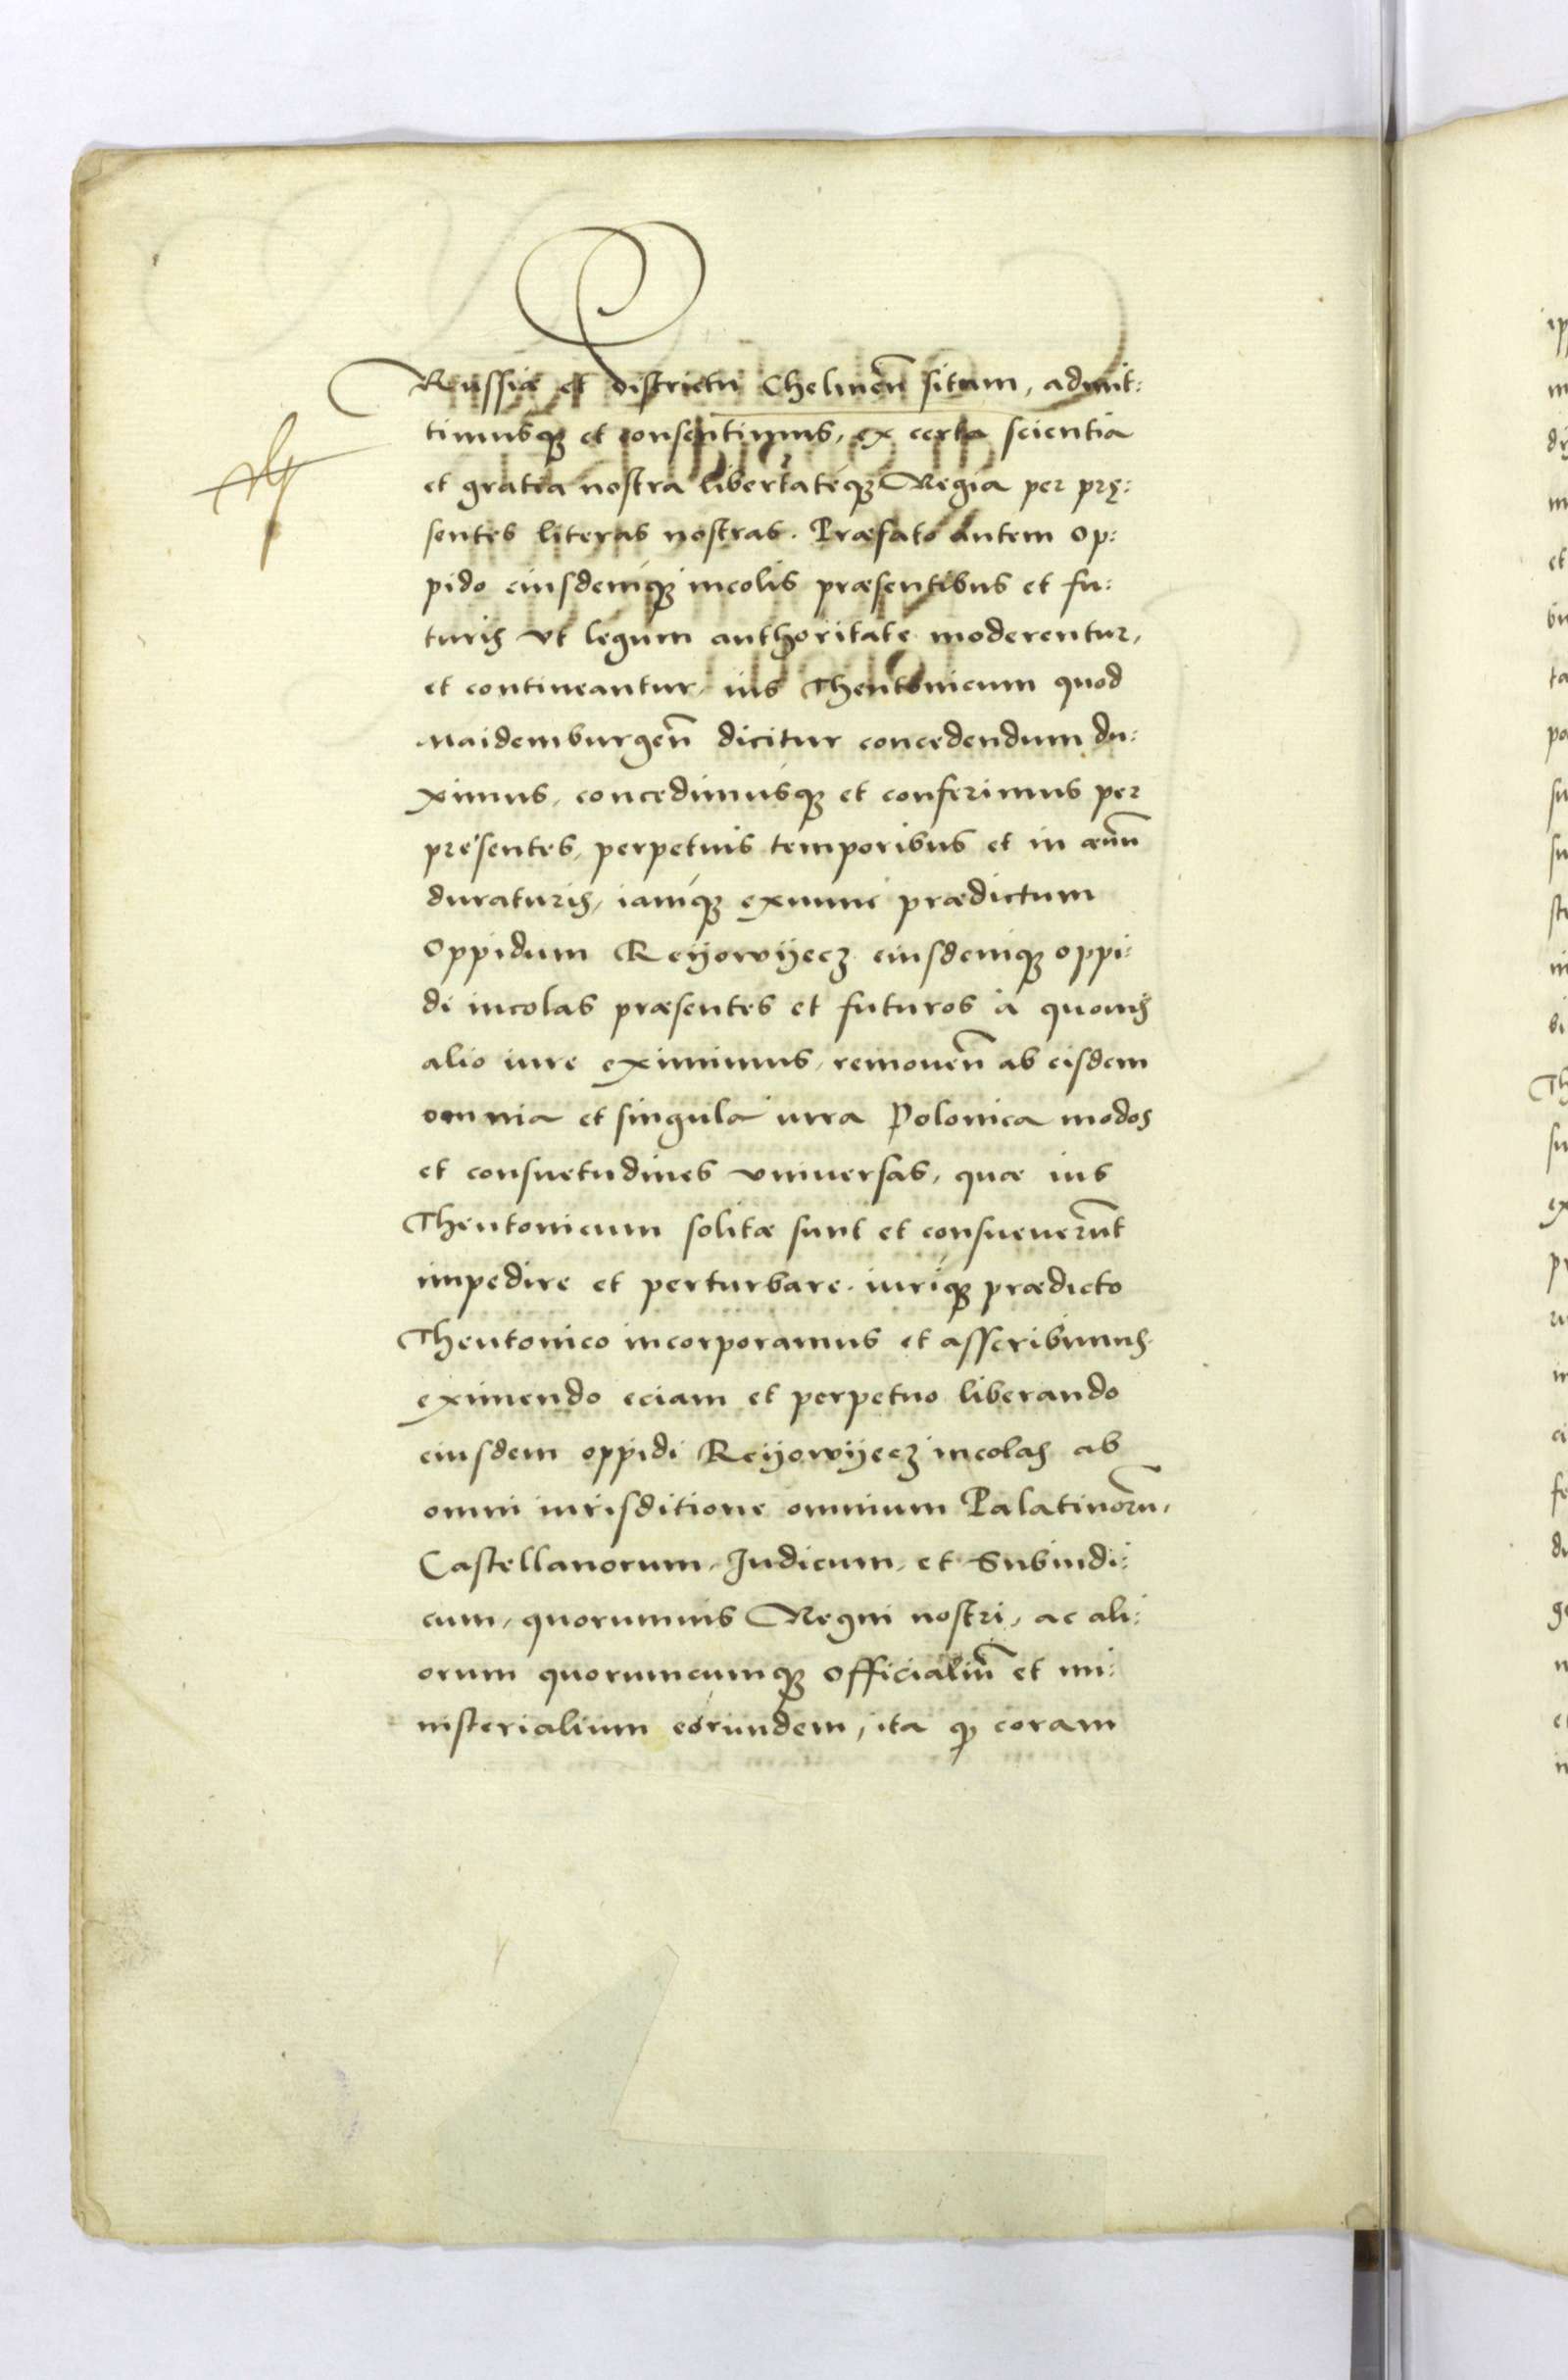 Russiæ et districtu Chelmeñ sitam, admit:
timusq́ꝫ et consentimus, ex certa scientia
et gratia nostra libertateq́ꝫ Regia per prę:
sentes literas nostras. Præfato autem op:
pido eiusdemq́ꝫ incolis præsentibus et fu:
turis vt legum authoritate moderentur,
et contineantur, ius Theutonicum quod
Maidemburgeñ dicitur concedendum du:
ximus, concedimusq́ꝫ et conferimus per
presentes, perpetuis temporibus et in æuũ
duraturis, iamq́ꝫ exnunc prædictum
Oppidum Reÿowÿecz eiusdemq́ꝫ oppi:
di incolas præsentes et futuros à quouis
alio iure eximimus, remoueñ ab eisdem
omnia et singula iura Polonica modos
et consuetudines vniuersas, quæ ius
Theutonicum solitæ sunt et consueuerũt
impedire et perturbare, iuriq́ꝫ prædicto
Theutonico incorporamus et asscribimus.
eximendo eciam et perpetuo liberando
eiusdem oppidi Reÿowÿecz incolas ab
omni iurisditione omnium Palatinorũ,
Castellanorum, Iudicum, et Subiudi:
cum, quorumuis Regni nostri, ac ali:
orum quorumcumqꝫ officialiũ et mi:
nisterialium eorundem, ita ꝙ coram